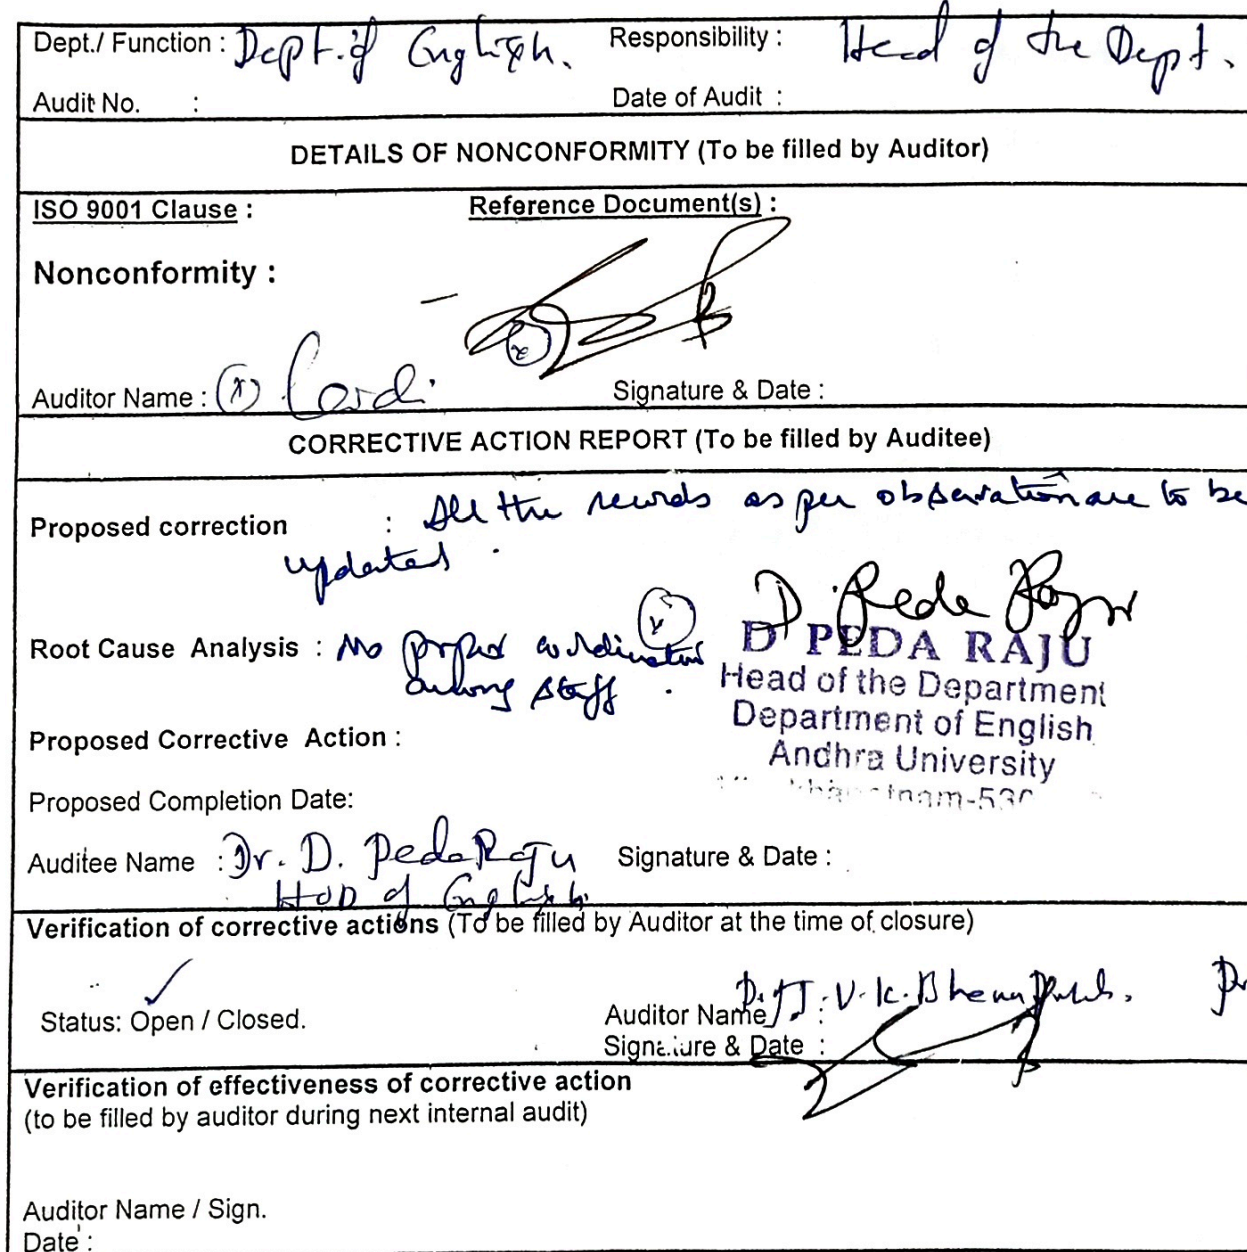 Dept./ Function : Dept. of English. Responsibility : Head of the Dept.
Audit No. : Date of Audit :
DETAILS OF NONCONFORMITY (To be filled by Auditor)
ISO 9001 Clause : Reference Document(s) :
Nonconformity :
Auditor Name : Signature & Date :
CORRECTIVE ACTION REPORT (To be filled by Auditee)
Proposed correction : All the records as per observation are to be
updated.
D Peda Raju
Root Cause Analysis : No proper coordination
among staff.
D PEDA RAJU
Head of the Department
Department of English
Andhra University
Proposed Corrective Action :
Proposed Completion Date:
Auditee Name : Dr. D. Peda Raju Signature & Date :
HOD of English
Verification of corrective actions (To be filled by Auditor at the time of closure)
Status: Open / Closed. Auditor Name : V. K.
Signature & Date :
Verification of effectiveness of corrective action
(to be filled by auditor during next internal audit)
Auditor Name / Sign.
Date :